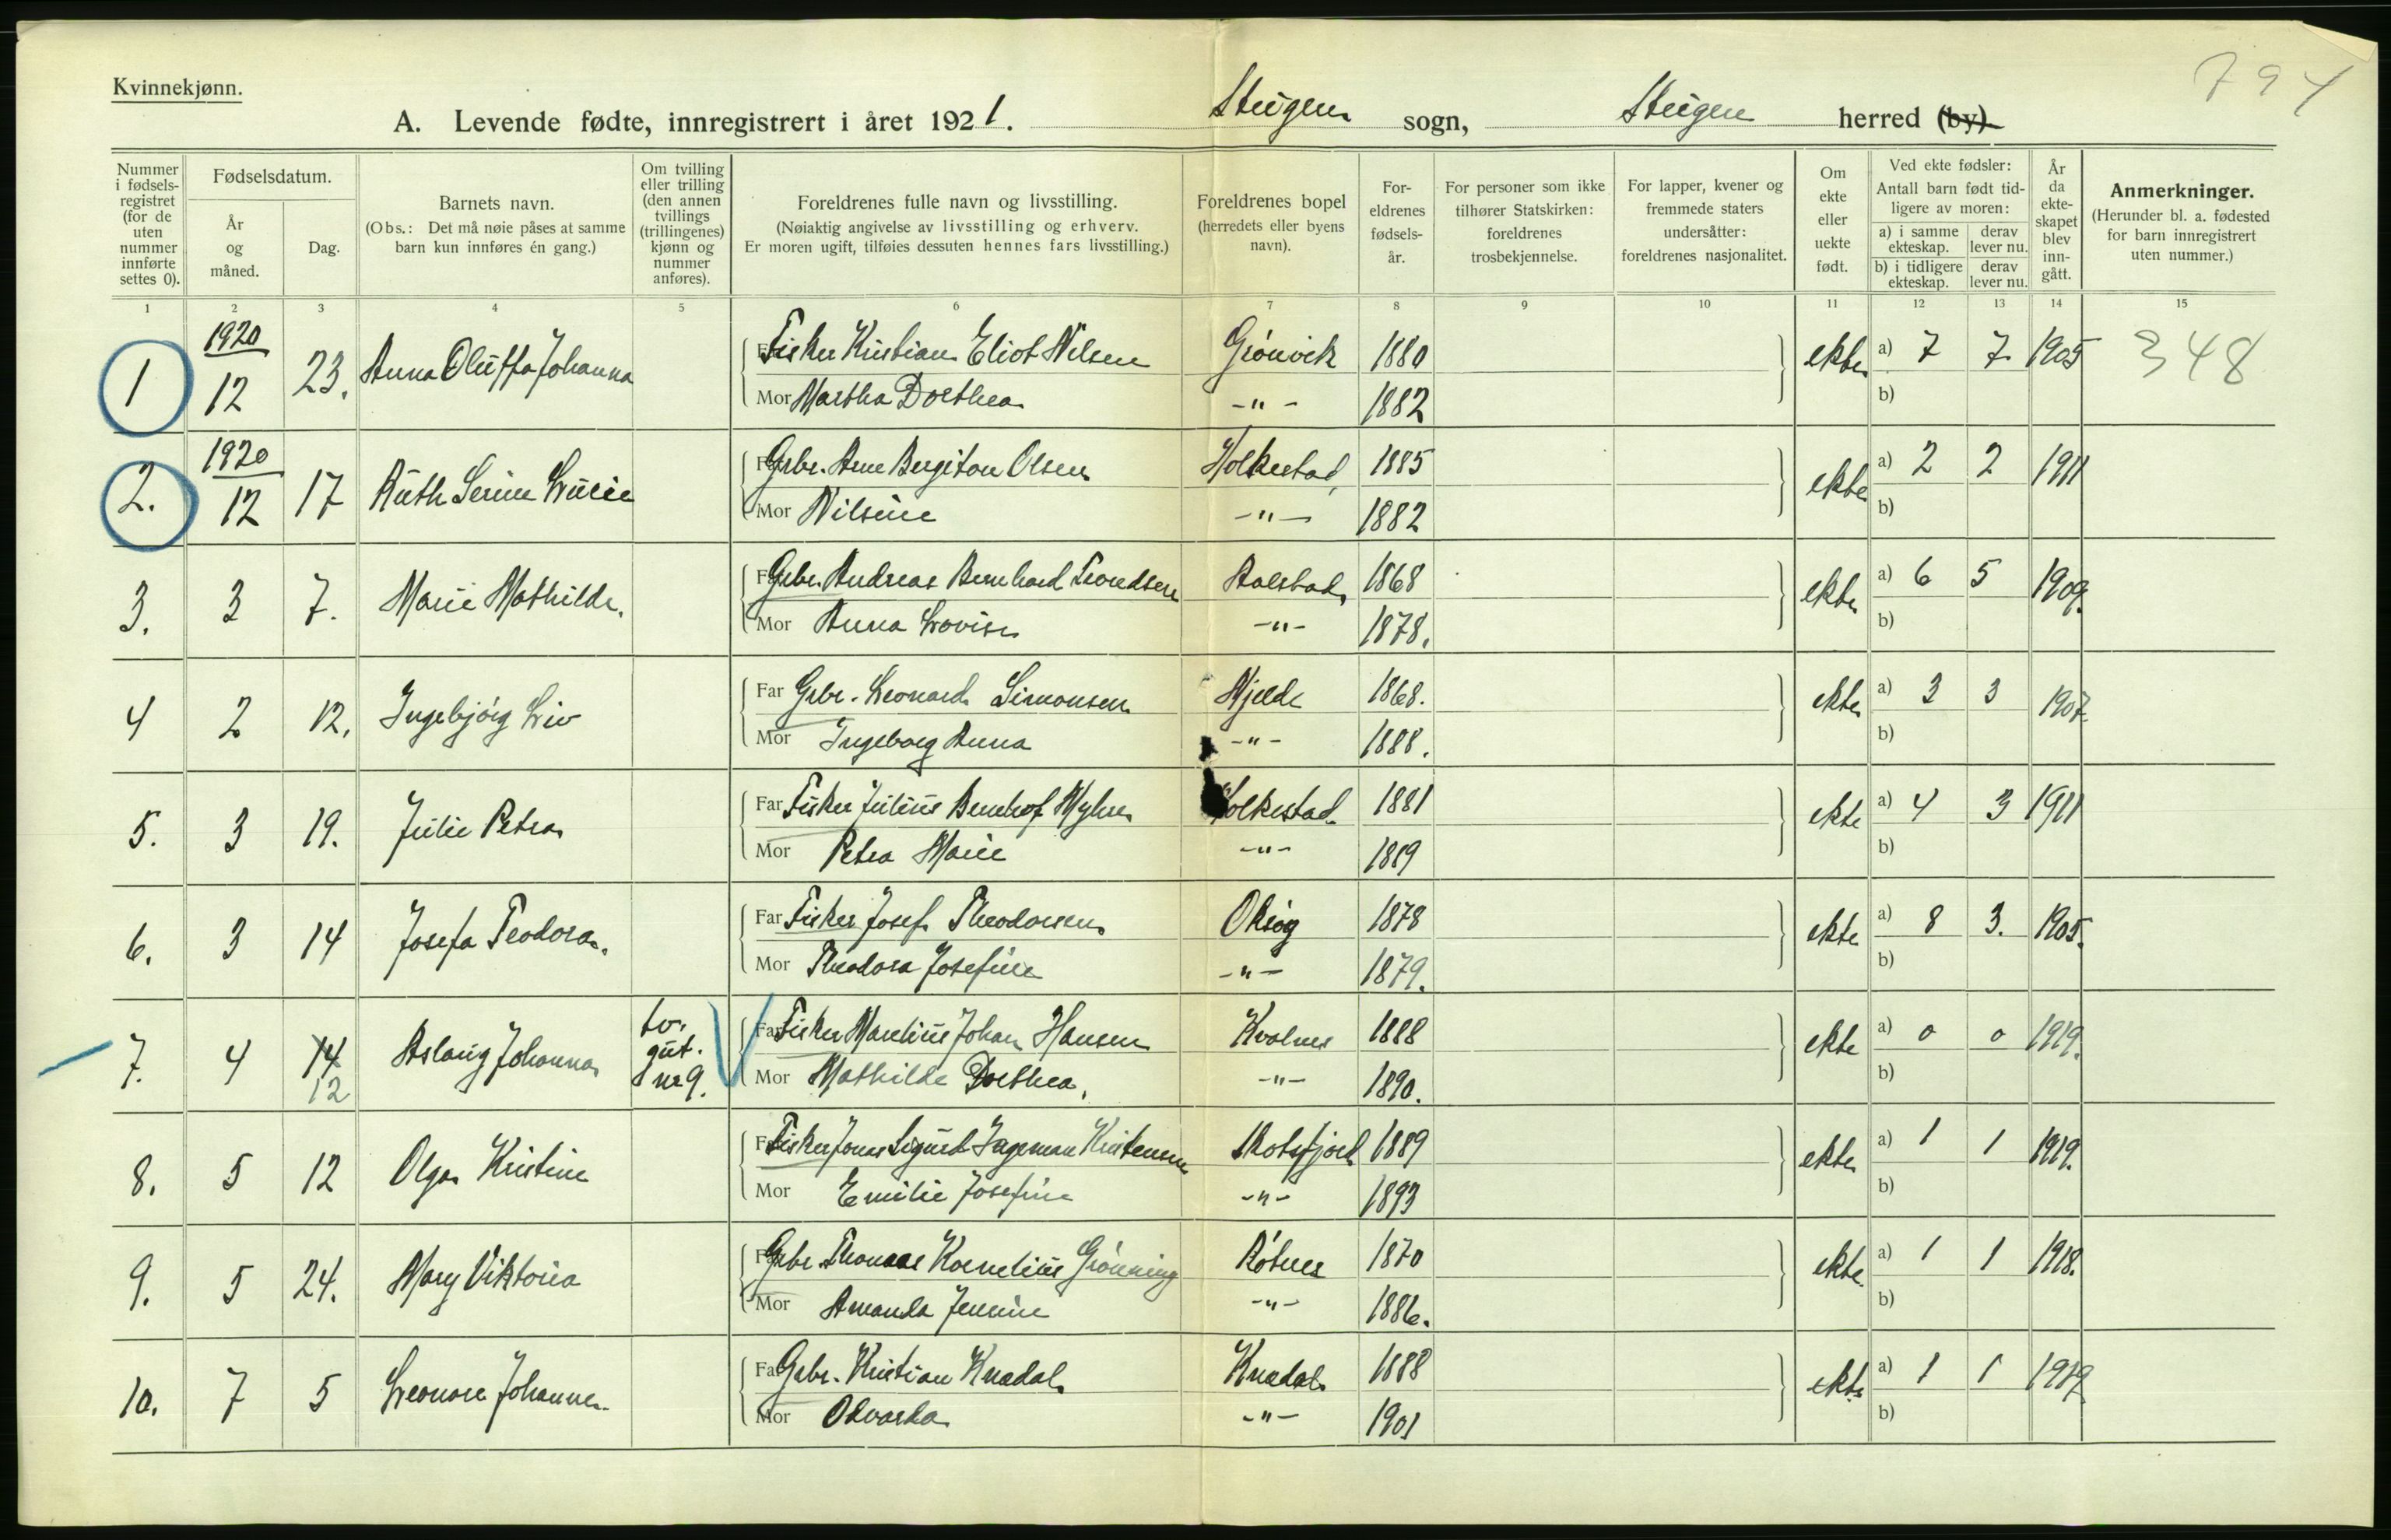 794
Kvinnekjønn.
A. Levende fødte, innregistrert i året 1921. Steigen sogn, Steigen herred (by)
Nummer i fødsels-registret (for de uten nummer innførte settes 0).
Fødselsdatum.
År og måned.
Dag.
Barnets navn.
(Obs.: Det må nøie påses at samme barn kun innføres én gang.)
Om tvilling eller trilling (den annen tvillings (trillingenes) kjønn og nummer anføres).
Foreldrenes fulle navn og livsstilling.
(Nøiaktig angivelse av livsstilling og erhverv.
Er moren ugift, tilføies dessuten hennes fars livsstilling.)
Foreldrenes bopel
(herredets eller byens navn).
For-eldrenes fødsels-år.
For personer som ikke tilhører Statskirken: foreldrenes trosbekjennelse.
For lapper, kvener og fremmede staters undersåtter: foreldrenes nasjonalitet.
Om ekte eller uekte født.
Ved ekte fødsler:
Antall barn født tid-ligere av moren:
a) i samme ekteskap. derav lever nu.
b) i tidligere ekteskap. derav lever nu.
År da ekte-skapet blev inn-gått.
Anmerkninger.
(Herunder bl. a. fødested for barn innregistrert uten nummer.)
1 2 3 4 5 6 7 8 9 10 11 12 13 14 15
1 1920 12 23. Anna Oluffa Johanna Far Fisker Kristian Eliot Nilsen Grönvik 1880 ekte a) 7 7 1905 348
Mor Martha Dorthea -"- 1882 b)
2. 1920 12 17 Ruth Serine Lucie Far Grbr. Arne Bergiton Olsen Holkestad 1885 ekte a) 2 2 1911
Mor Nilsine -"- 1882 b)
3. 3 7. Marie Mathilde. Far Grbr. Andreas Bernhard Trondsen Aalstad 1868 ekte a) 6 5 1909.
Mor Anna Lovise -"- 1878. b)
4 2 12. Ingebjörg Liv Far Grbr. Leonard Simonsen Hjelde 1868. ekte a) 3 3 1907.
Mor Ingeborg Anna -"- 1888. b)
5. 3 19. Julie Petra Far Fisker Julius Bernhof Myhre Holkestad 1881 ekte a) 4 3 1911
Mor Petra Marie -"- 1889 b)
6. 3 14 Josefa Teodora. Far Fisker Josef Theodorsen Oksög 1878 ekte a) 8 3. 1905.
Mor Theodora Josefine -"- 1879. b)
7. 4 14 12 Aslaug Johanna tv. gut. nr 9. Far Fisker Marelius Johan Hansen Kvalnes 1888 ekte a) 0 0 1919.
Mor Mathilde Dorthea. -"- 1890. b)
8. 5 12 Olga Kristine Far Fisker Jonas Sigurd Ingeman Kristensen Skotsfjord 1889 ekte a) 1 1 1919.
Mor Emilie Josefine -"- 1893 b)
9. 5 24. Mary Viktoria Far Grbr. Thomas Kornelius Grönning Rötnes 1870 ekte. a) 1 1 1918.
Mor Amanda Jennine -"- 1886. b)
10. 7 5 Leonore Johanne Far Grbr. Kristian Knedal Knedal 1888 ekte a) 1 1 1919.
Mor Odvarda -"- 1901 b)